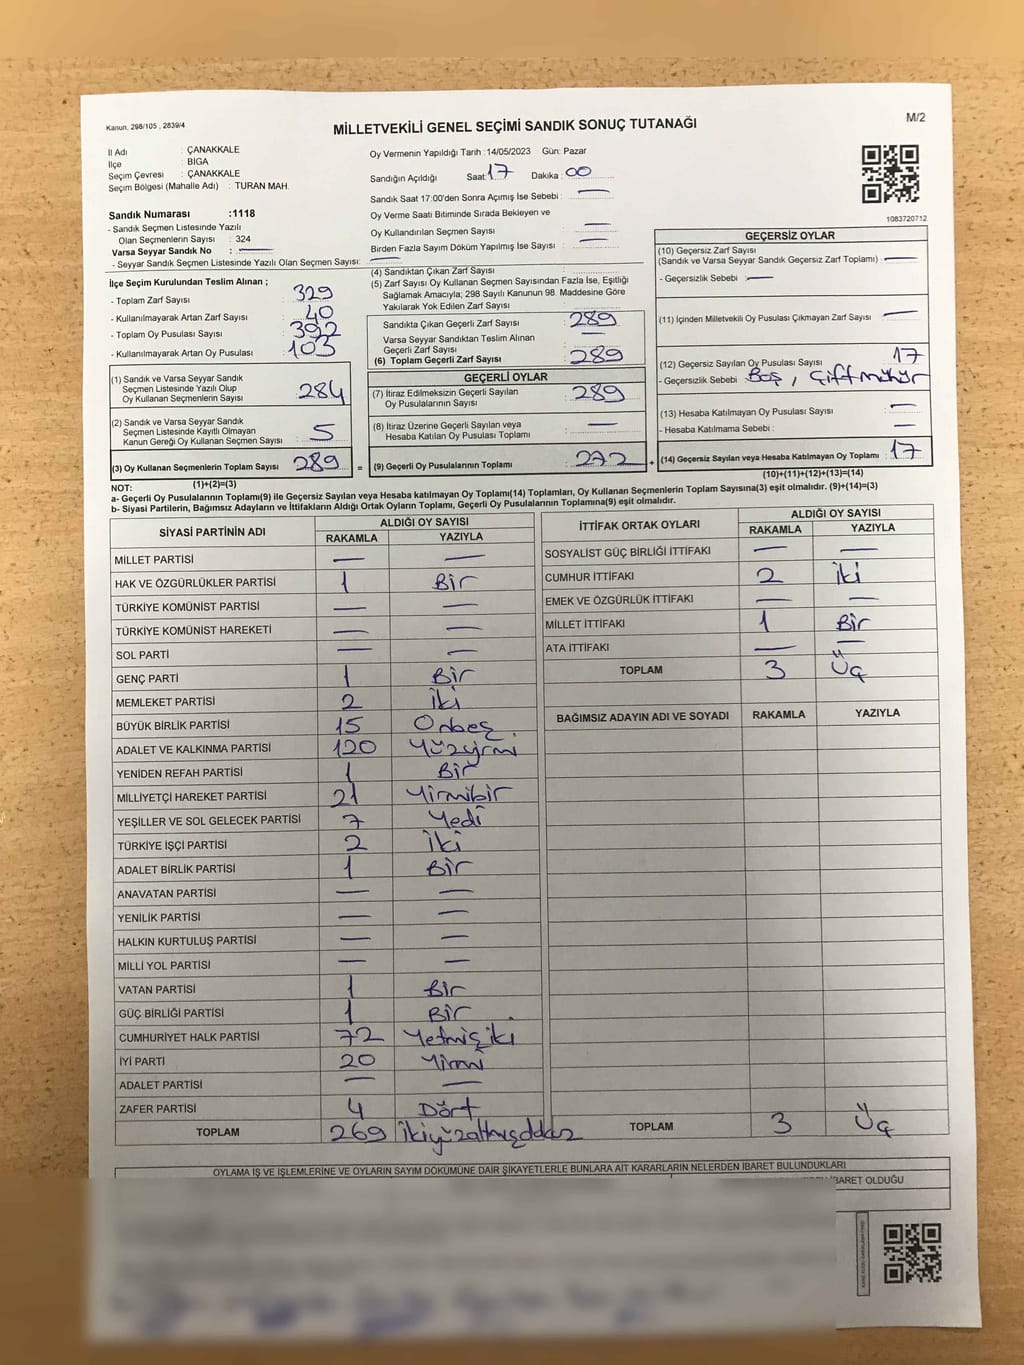 Kanun, 298/105 , 2839/4
M/2
MİLLETVEKİLİ GENEL SEÇİMİ SANDIK SONUÇ TUTANAĞI
İl Adı : ÇANAKKALE
İlçe : BİGA
Seçim Çevresi : ÇANAKKALE
Seçim Bölgesi (Mahalle Adı) : TURAN MAH.
Sandık Numarası :1118
- Sandık Seçmen Listesinde Yazılı
Olan Seçmenlerin Sayısı : 324
Varsa Seyyar Sandık No : —
- Seyyar Sandık Seçmen Listesinde Yazılı Olan Seçmen Sayısı: —
Oy Vermenin Yapıldığı Tarih :14/05/2023 Gün: Pazar
Sandığın Açıldığı Saat: 17 Dakika : 00
Sandık Saat 17:00'den Sonra Açımış İse Sebebi : —
Oy Verme Saati Bitiminde Sırada Bekleyen ve
Oy Kullandırılan Seçmen Sayısı : —
Birden Fazla Sayım Döküm Yapılmış İse Sayısı : —
1083720712
İlçe Seçim Kurulundan Teslim Alınan ;
- Toplam Zarf Sayısı : 329
- Kullanılmayarak Artan Zarf Sayısı : 40
- Toplam Oy Pusulası Sayısı : 392
- Kullanılmayarak Artan Oy Pusulası : 103
(1) Sandık ve Varsa Seyyar Sandık
Seçmen Listesinde Yazılı Olup
Oy Kullanan Seçmenlerin Sayısı : 284
(2) Sandık ve Varsa Seyyar Sandık
Seçmen Listesinde Kayıtlı Olmayan
Kanun Gereği Oy Kullanan Seçmen Sayısı : 5
(3) Oy Kullanan Seçmenlerin Toplam Sayısı : 289
(1)+(2)=(3)
(4) Sandıktan Çıkan Zarf Sayısı :
(5) Zarf Sayısı Oy Kullanan Seçmen Sayısından Fazla İse, Eşitliği
Sağlamak Amacıyla; 298 Sayılı Kanunun 98. Maddesine Göre
Yakılarak Yok Edilen Zarf Sayısı :
Sandıkta Çıkan Geçerli Zarf Sayısı : 289
Varsa Seyyar Sandıktan Teslim Alınan
Geçerli Zarf Sayısı : —
(6) Toplam Geçerli Zarf Sayısı : 289
GEÇERLİ OYLAR
(7) İtiraz Edilmeksizin Geçerli Sayılan
Oy Pusulalarının Sayısı : 289
(8) İtiraz Üzerine Geçerli Sayılan veya
Hesaba Katılan Oy Pusulası Toplamı : —
= (9) Geçerli Oy Pusulalarının Toplamı : 272 +
GEÇERSİZ OYLAR
(10) Geçersiz Zarf Sayısı
(Sandık ve Varsa Seyyar Sandık Geçersiz Zarf Toplamı) : —
- Geçersizlik Sebebi : —
(11) İçinden Milletvekili Oy Pusulası Çıkmayan Zarf Sayısı : —
(12) Geçersiz Sayılan Oy Pusulası Sayısı : 17
- Geçersizlik Sebebi : Boş , Çift mühür
(13) Hesaba Katılmayan Oy Pusulası Sayısı : —
- Hesaba Katılmama Sebebi : —
(14) Geçersiz Sayılan veya Hesaba Katılmayan Oy Toplamı : 17
(10)+(11)+(12)+(13)=(14)
NOT:
a- Geçerli Oy Pusulalarının Toplamı(9) ile Geçersiz Sayılan veya Hesaba katılmayan Oy Toplamı(14) Toplamları, Oy Kullanan Seçmenlerin Toplam Sayısına(3) eşit olmalıdır. (9)+(14)=(3)
b- Siyasi Partilerin, Bağımsız Adayların ve İttifakların Aldığı Ortak Oyların Toplamı, Geçerli Oy Pusulalarının Toplamına(9) eşit olmalıdır.
SİYASİ PARTİNİN ADI ALDIĞI OY SAYISI
RAKAMLA YAZIYLA
MİLLET PARTİSİ — —
HAK VE ÖZGÜRLÜKLER PARTİSİ 1 Bir
TÜRKİYE KOMÜNİST PARTİSİ — —
TÜRKİYE KOMÜNİST HAREKETİ — —
SOL PARTİ — —
GENÇ PARTİ 1 Bir
MEMLEKET PARTİSİ 2 İki
BÜYÜK BİRLİK PARTİSİ 15 Onbeş
ADALET VE KALKINMA PARTİSİ 120 Yüzyirmi
YENİDEN REFAH PARTİSİ 1 Bir
MİLLİYETÇİ HAREKET PARTİSİ 21 Yirmibir
YEŞİLLER VE SOL GELECEK PARTİSİ 7 Yedi
TÜRKİYE İŞÇİ PARTİSİ 2 İki
ADALET BİRLİK PARTİSİ 1 Bir
ANAVATAN PARTİSİ — —
YENİLİK PARTİSİ — —
HALKIN KURTULUŞ PARTİSİ — —
MİLLİ YOL PARTİSİ — —
VATAN PARTİSİ 1 Bir
GÜÇ BİRLİĞİ PARTİSİ 1 Bir
CUMHURİYET HALK PARTİSİ 72 Yetmiş iki
İYİ PARTİ 20 Yirmi
ADALET PARTİSİ — —
ZAFER PARTİSİ 4 Dört
TOPLAM 269
İTTİFAK ORTAK OYLARI ALDIĞI OY SAYISI
RAKAMLA YAZIYLA
SOSYALİST GÜÇ BİRLİĞİ İTTİFAKI — —
CUMHUR İTTİFAKI 2 İki
EMEK VE ÖZGÜRLÜK İTTİFAKI — —
MİLLET İTTİFAKI 1 Bir
ATA İTTİFAKI — —
TOPLAM 3 Üç
BAĞIMSIZ ADAYIN ADI VE SOYADI RAKAMLA YAZIYLA
TOPLAM 3 Üç
OYLAMA İŞ VE İŞLEMLERİNE VE OYLARIN SAYIM DÖKÜMÜNE DAİR ŞİKAYETLERLE BUNLARA AİT KARARLARIN NELERDEN İBARET BULUNDUKLARI
İBARET OLDUĞU